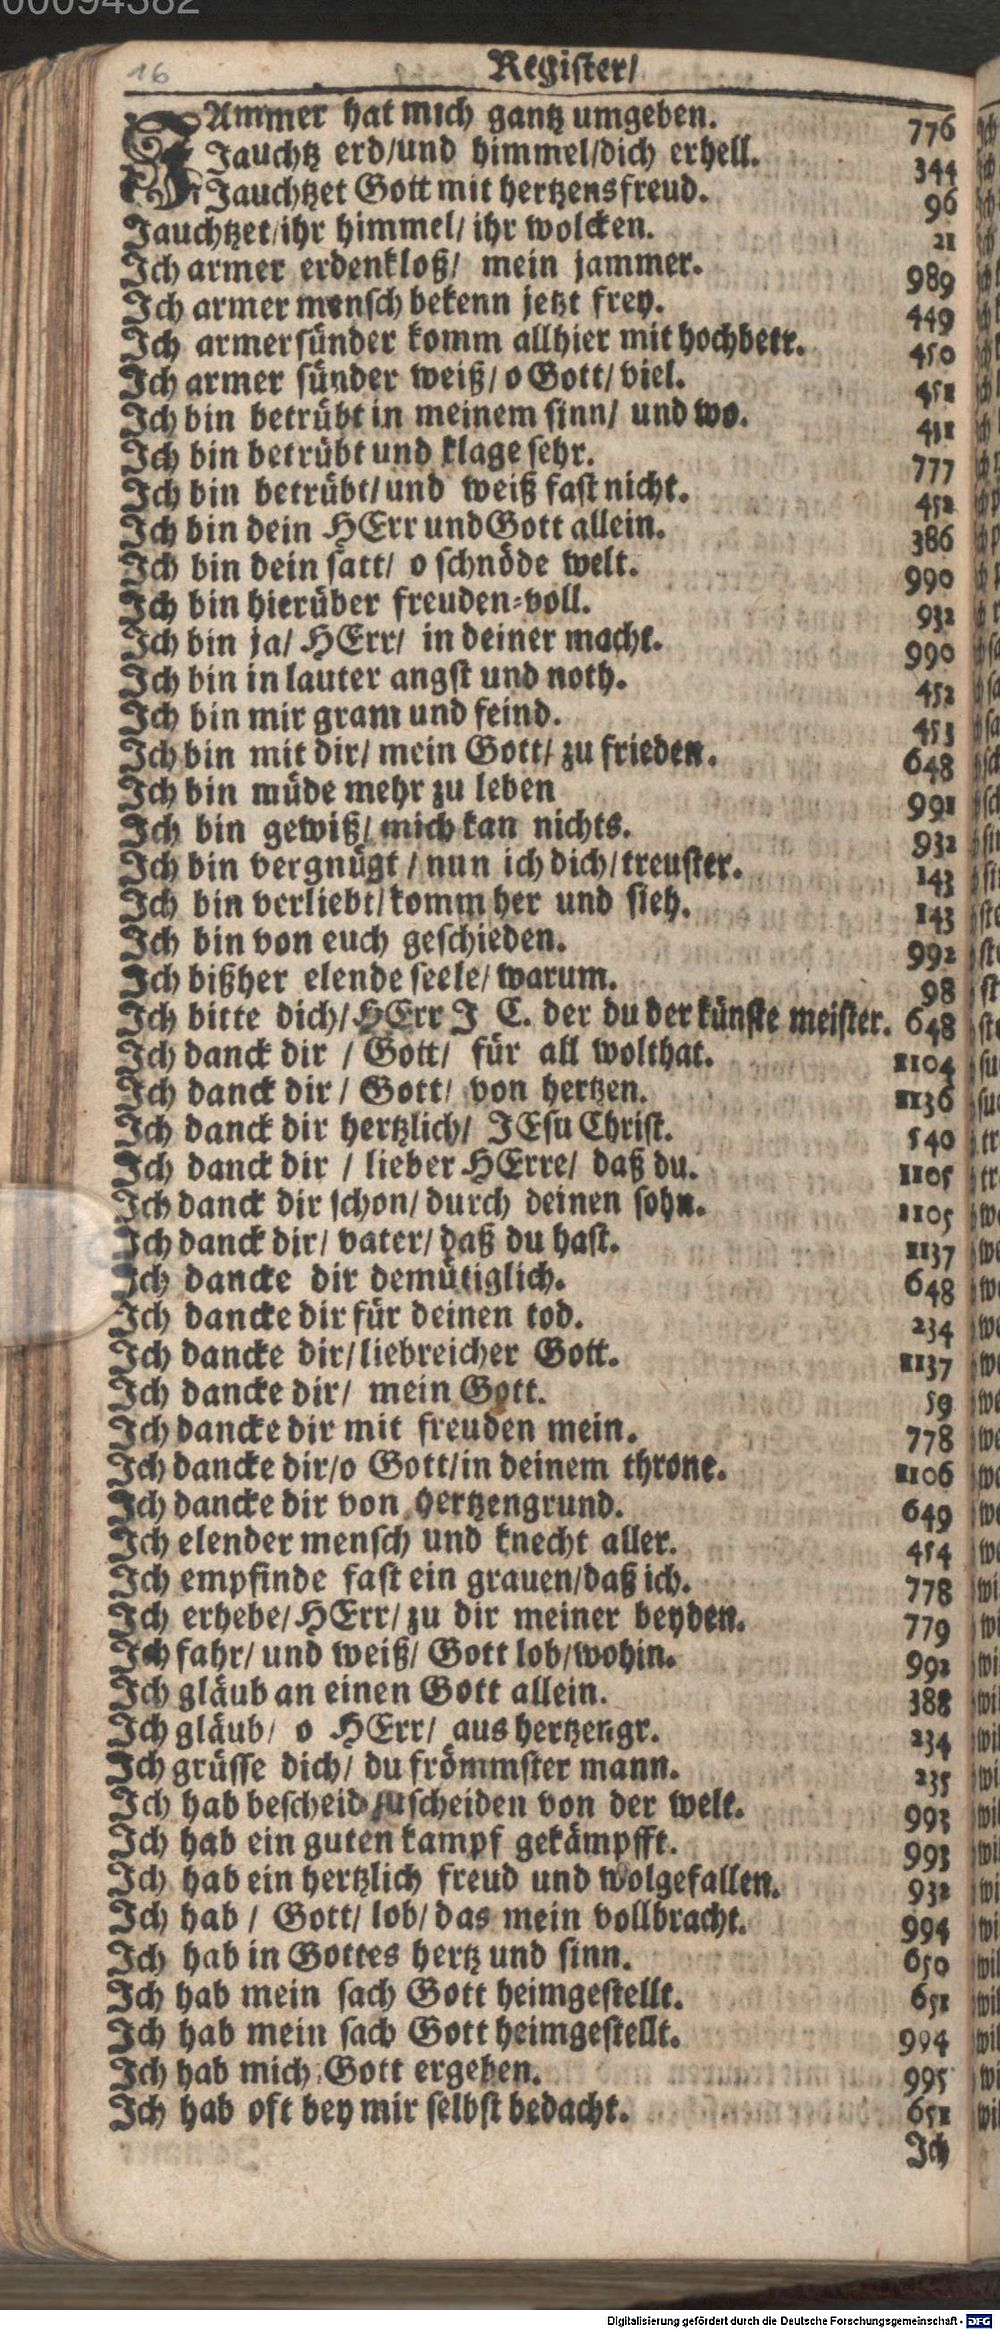 00094382
16
Register/
JAmmer hat mich gantz umgeben. 776
Jauchtz erd/und himmel/dich erhell. 344
Jauchtzet Gott mit hertzens freud. 96
Jauchtzet/ihr himmel/ ihr wolcken. 21
Jch armer erdenkloß/ mein jammer. 989
Jch armer mensch bekenn jetzt frey. 449
Jch armer sünder komm allhier mit hochbetr. 450
Jch armer sünder weiß/ o Gott/ viel. 451
Jch bin betrübt in meinem sinn/ und wo. 451
Jch bin betrübt und klage sehr. 777
Jch bin betrübt/ und weiß fast nicht. 452
Jch bin dein HErr und Gott allein. 386
Jch bin dein satt/ o schnöde welt. 990
Jch bin hierüber freuden-voll. 932
Jch bin ja/ HErr/ in deiner macht. 990
Jch bin in lauter angst und noth. 452
Jch bin mir gram und feind. 453
Jch bin mit dir/ mein Gott/ zu frieden. 648
Jch bin müde mehr zu leben 991
Jch bin gewiß/ mich kan nichts. 932
Jch bin vergnügt / nun ich dich/ treuster. 143
Jch bin verliebt/ komm her und sieh. 143
Jch bin von euch geschieden. 992
Jch bißher elende seele/ warum. 98
Jch bitte dich/ HErr J C. der du der künste meister. 648
Jch danck dir / Gott/ für all wolthat. 1104
Jch danck dir / Gott/ von hertzen. 1136
Jch danck dir hertzlich/ JEsu Christ. 540
Jch danck dir / lieber HErre/ daß du. 1105
Jch danck dir schon/ durch deinen sohn. 1105
Jch danck dir/ vater/ daß du hast. 1137
Jch dancke dir demütiglich. 648
Jch dancke dir für deinen tod. 234
Jch dancke dir/ liebreicher Gott. 1137
Jch dancke dir/ mein Gott. 59
Jch dancke dir mit freuden mein. 778
Jch dancke dir/o Gott/in deinem throne. 1106
Jch dancke dir von hertzengrund. 649
Jch elender mensch und knecht aller. 454
Jch empfinde fast ein grauen/daß ich. 778
Jch erhebe/ HErr/ zu dir meiner beyden. 779
Jch fahr/ und weiß/ Gott lob/wohin. 992
Jch gläub an einen Gott allein. 388
Jch gläub/ o HErr/ aus hertzengr. 234
Jch grüsse dich/ du frömmster mann. 235
Jch hab bescheid zu scheiden von der welt. 993
Jch hab ein guten kampf gekämpfft. 993
Jch hab ein hertzlich freud und wolgefallen. 932
Jch hab / Gott/ lob/ das mein vollbracht. 994
Jch hab in Gottes hertz und sinn. 650
Jch hab mein sach Gott heimgestellt. 651
Jch hab mein sach Gott heimgestellt. 994
Jch hab mich Gott ergeben. 995
Jch hab oft bey mir selbst bedacht. 651
Jch
Digitalisierung gefördert durch die Deutsche Forschungsgemeinschaft - DFG